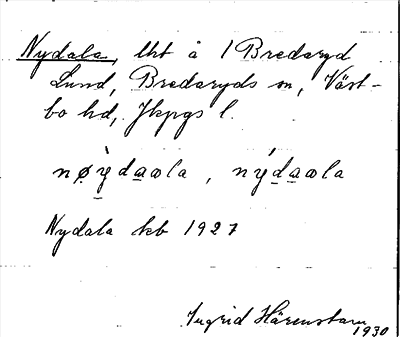 Nydala, lht å 1 Bredaryd
Lund, Bredaryds sn, Väst-
bo hd, Jkpgs l.
nøỳdaωla, nýdaωla
Nydala kb 1927
Ingrid Härenstam
1930